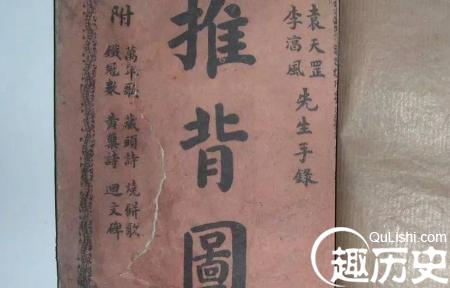 袁天罡
李淳風
先生手錄
推背圖
附
萬年歌 藏頭詩 燒餅歌
鐵冠數 黃巢詩 迴文碑
QuLishi.com
趣历史